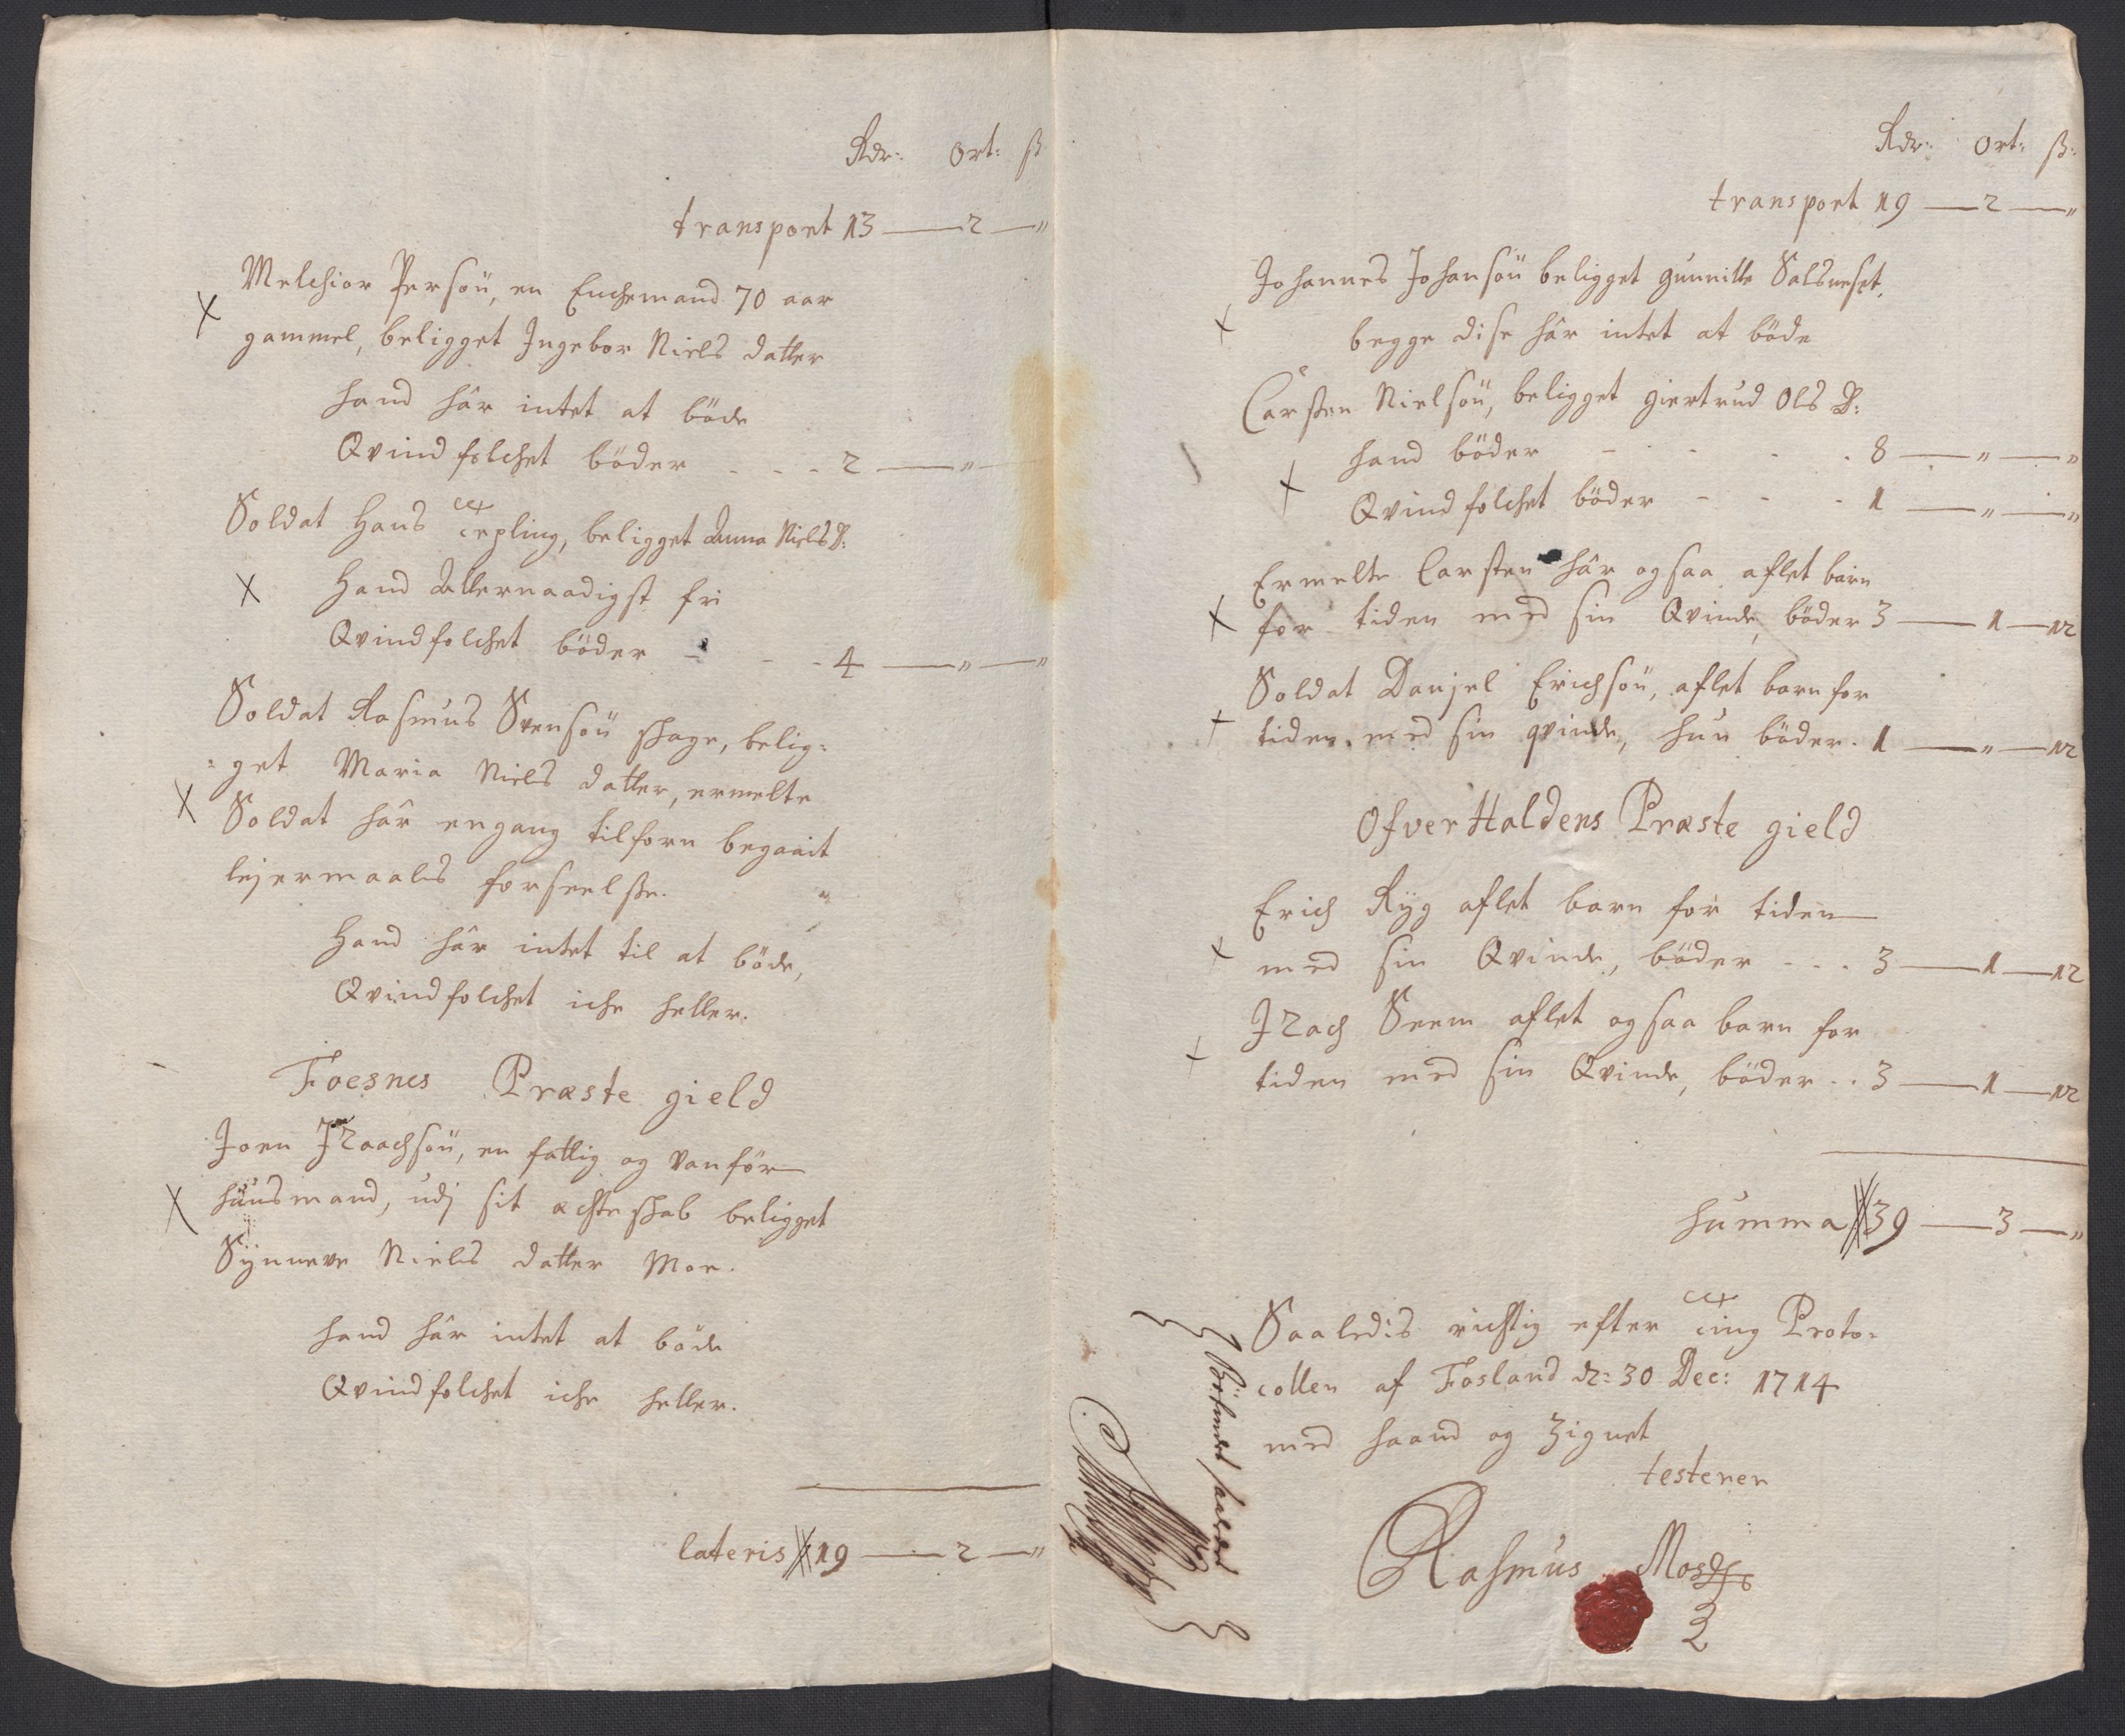 Rdr: Ort: ß
transport 13 — 2 — "
Melchior Persøn, en Enchemand 70 aar
gammel, beligget Ingebor Niels datter
hand hâr intet at böde
Qvindfolchet böder - - - 2 — " —
Soldat Hans Tepling, beligget Anna Niels D:
Hand Allernaadigst fri
Qvindfolchet böder - - - 4 — " — "
Soldat Rasmus Svensøn Skage, belig=
=get Maria Niels datter, ermelte
Soldat hâr engang tilforn begaait
lejermaals forseelsse.
Hand hâr intet til at böde,
Qvindfolchet iche heller.
Foesnes Præste gield
Joen Jzaachsøn, en fattig og vanför
huusmand, udj sit ächteskab beligget
Synneve Niels datter Moe.
hand hâr intet at böde
Qvindfolchet iche heller.
lateris 19 — 2 — "
Rdr: Ort: ß:
transport 19 — 2 — "
Johannes Johansøn beligget Gunnille Salsneset,
begge dise hâr intet at böde
Carsten Nielsøn, beligget Giertrud Ols D:
hand böder - - - - 8 — " — "
Qvindfolchet böder - - - 1 — " — "
Ermelte Carsten hâr ogsaa aflet barn
for tiden med sin Qvinde, böder 3 — 1 — 12
Soldat Danjel Erichsøn, aflet barn for
tiden med sin qvinde, hun böder . 1 — " — 12
Ofver Haldens Præste gield
Erich Ryg aflet barn for tiden
med sin Qvinde, böder - - - 3 — 1 — 12
Jzach Seem aflet ogsaa barn for
tiden med sin Qvinde, böder . . 3 — 1 — 12
Summa 39 — 3 — "
Saaledis richtig efter Ting Proto=
collen af Fosland d: 30 Dec: 1714
med haand og Zignet
testerer
Rasmus